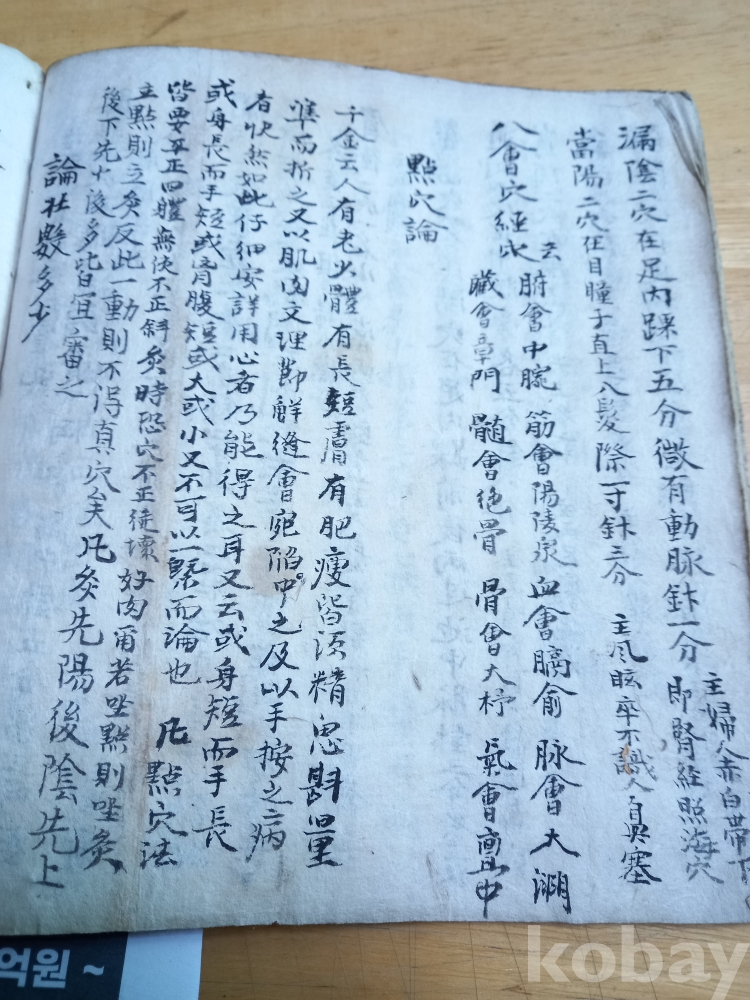 漏陰二穴在足內踝下五分微有動脉針一分
主婦人赤白帶下
即腎經照海穴
當陽二穴在目瞳子直上入髮際一寸針三分
主風眩卒不識人鼻塞
八會穴經穴云
腑會中脘 筋會陽陵泉 血會膈俞 脉會大淵
臟會章門 髓會絶骨 骨會大杼 氣會亶中
點穴論
千金云人有老少體有長短膚有肥瘦皆須精思斟量
準而折之又以肌肉文理節解縫會宛陷中之及以手按之病
者快然如此仔細安詳用心者乃能得之耳又云或身短而手長
或身長而手短或胷腹短或大或小又不可以一槩而論也 凡點穴法
皆要平正四體無使不正斜灸時恐穴不正徒壞好肉爾若坐點則坐灸
立點則立灸反此一動則不得真穴矣凡灸先陽後陰先上
後下先少後多皆宜審之
論壯數多少
억원 ~
kobay